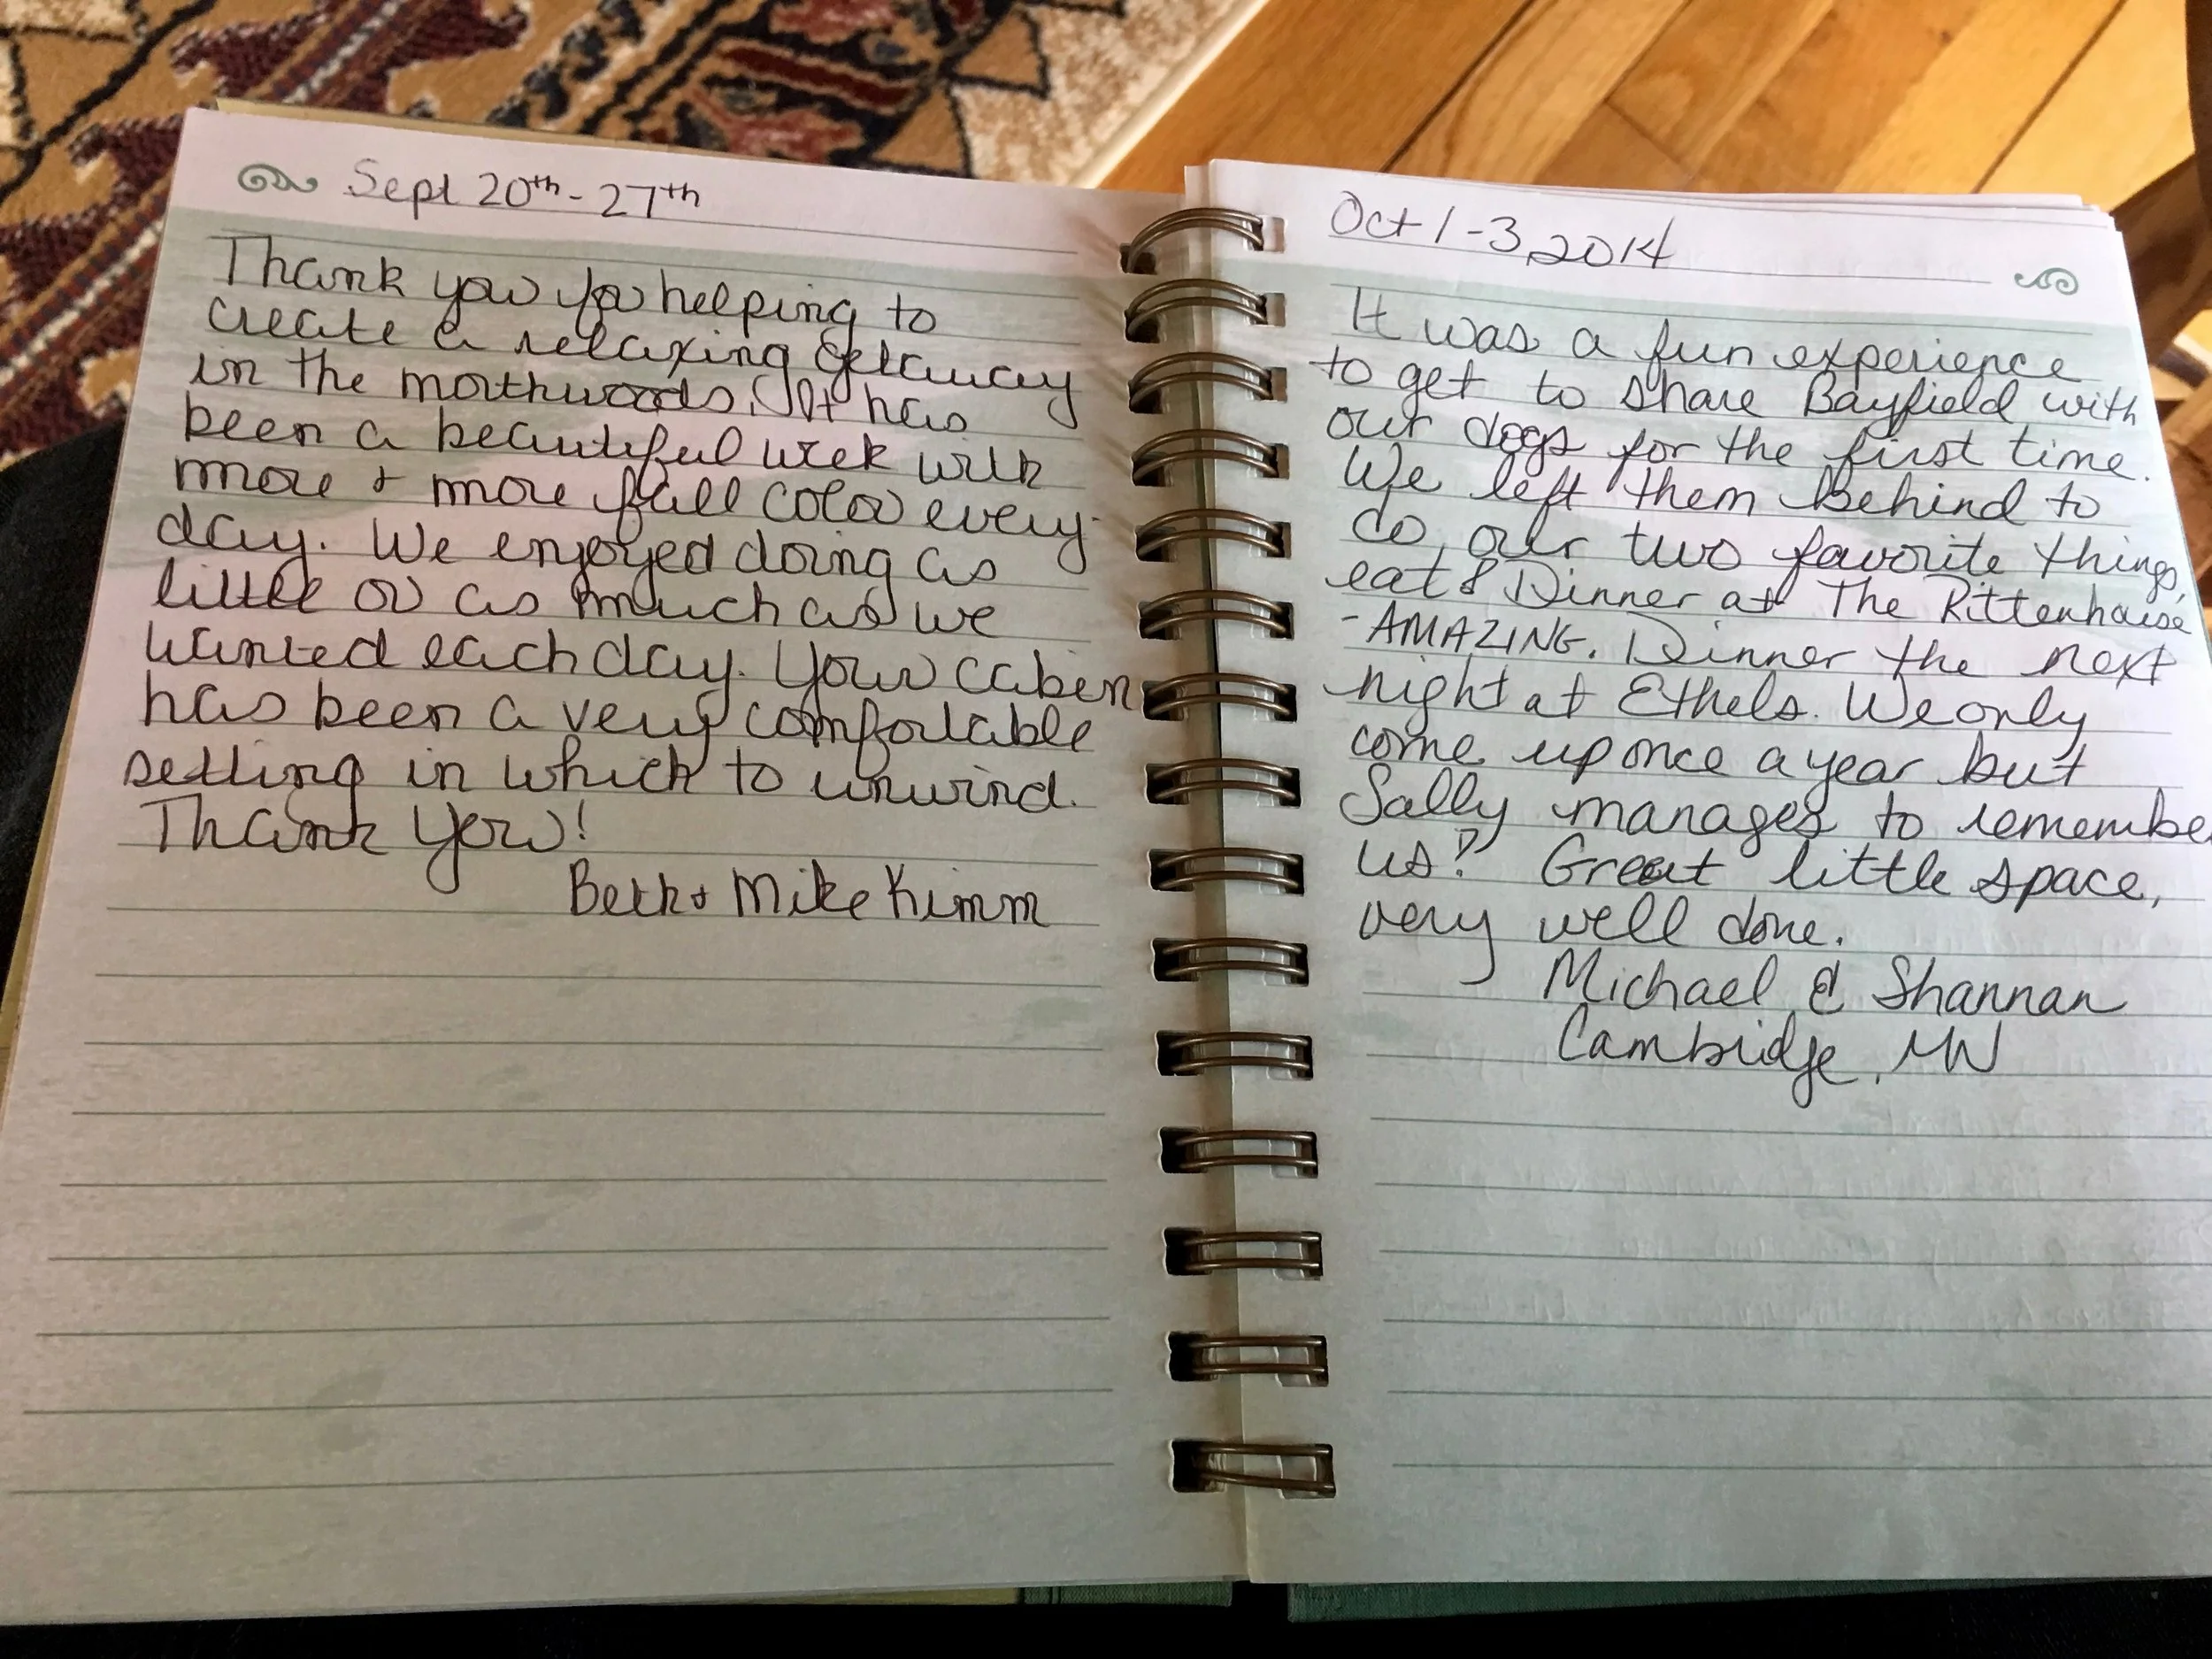 Sept 20th - 27th
Thank you for helping to
create a relaxing getaway
in the northwoods. It has
been a beautiful week with
more + more fall color every
day. We enjoyed doing as
little or as much as we
wanted each day. Your cabin
has been a very comfortable
setting in which to unwind.
Thank You!
Beth + Mike Kimm
Oct 1-3, 2014
It was a fun experience
to get to share Bayfield with
our dogs for the first time.
We left them behind to
do our two favorite things,
eat & Dinner at The Rittenhouse
- AMAZING. Dinner the next
night at Ethels. We only
come up once a year but
Sally manages to remembe
us? Great little space,
very well done.
Michael & Shannan
Cambridge, MN